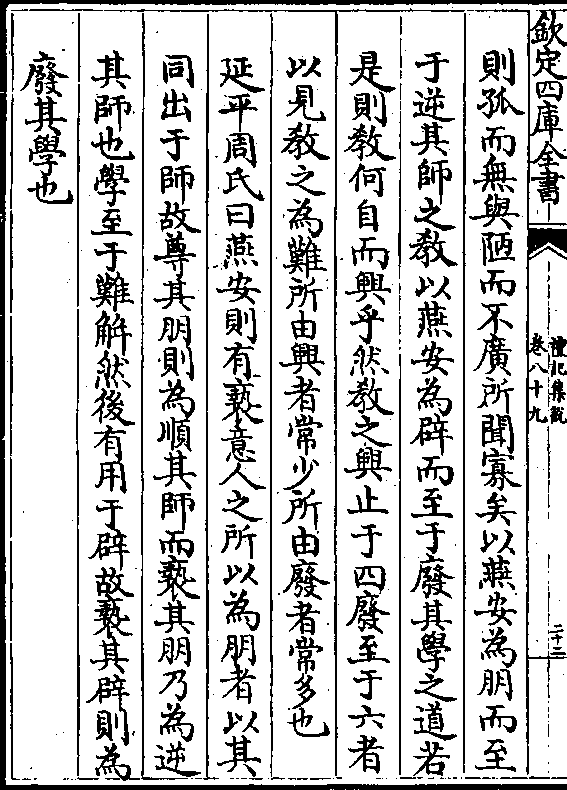 欽定四庫全書
禮記集説
卷八十九
二十二
則孤而無與陋而不廣所聞寡矣以燕安為朋而至
于逆其師之教以燕安為辟而至于廢其學之道若
是則教何自而興乎然教之興止于四廢至于六者
以見教之為難所由興者常少所由廢者常多也
延平周氏曰燕安則有褻意人之所以為朋者以其
同出于師故尊其朋則為順其師而褻其朋乃為逆
其師也學至于難解然後有用于辟故褻其辟則為
廢其學也